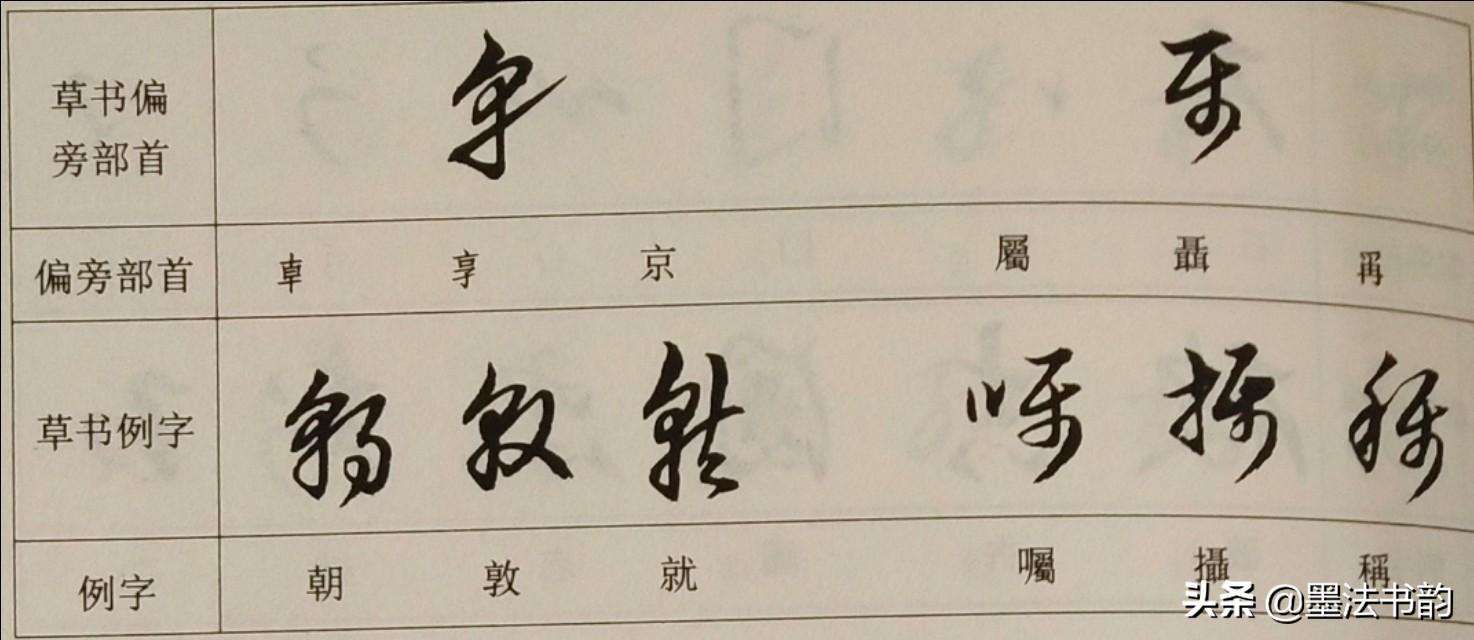 草书偏
旁部首
偏旁部首 𠦝 享 京 屬 聶 爯
草书例字 朝 敦 就 囑 攝 稱
例字 朝 敦 就 囑 攝 稱
头条 @墨法书韵